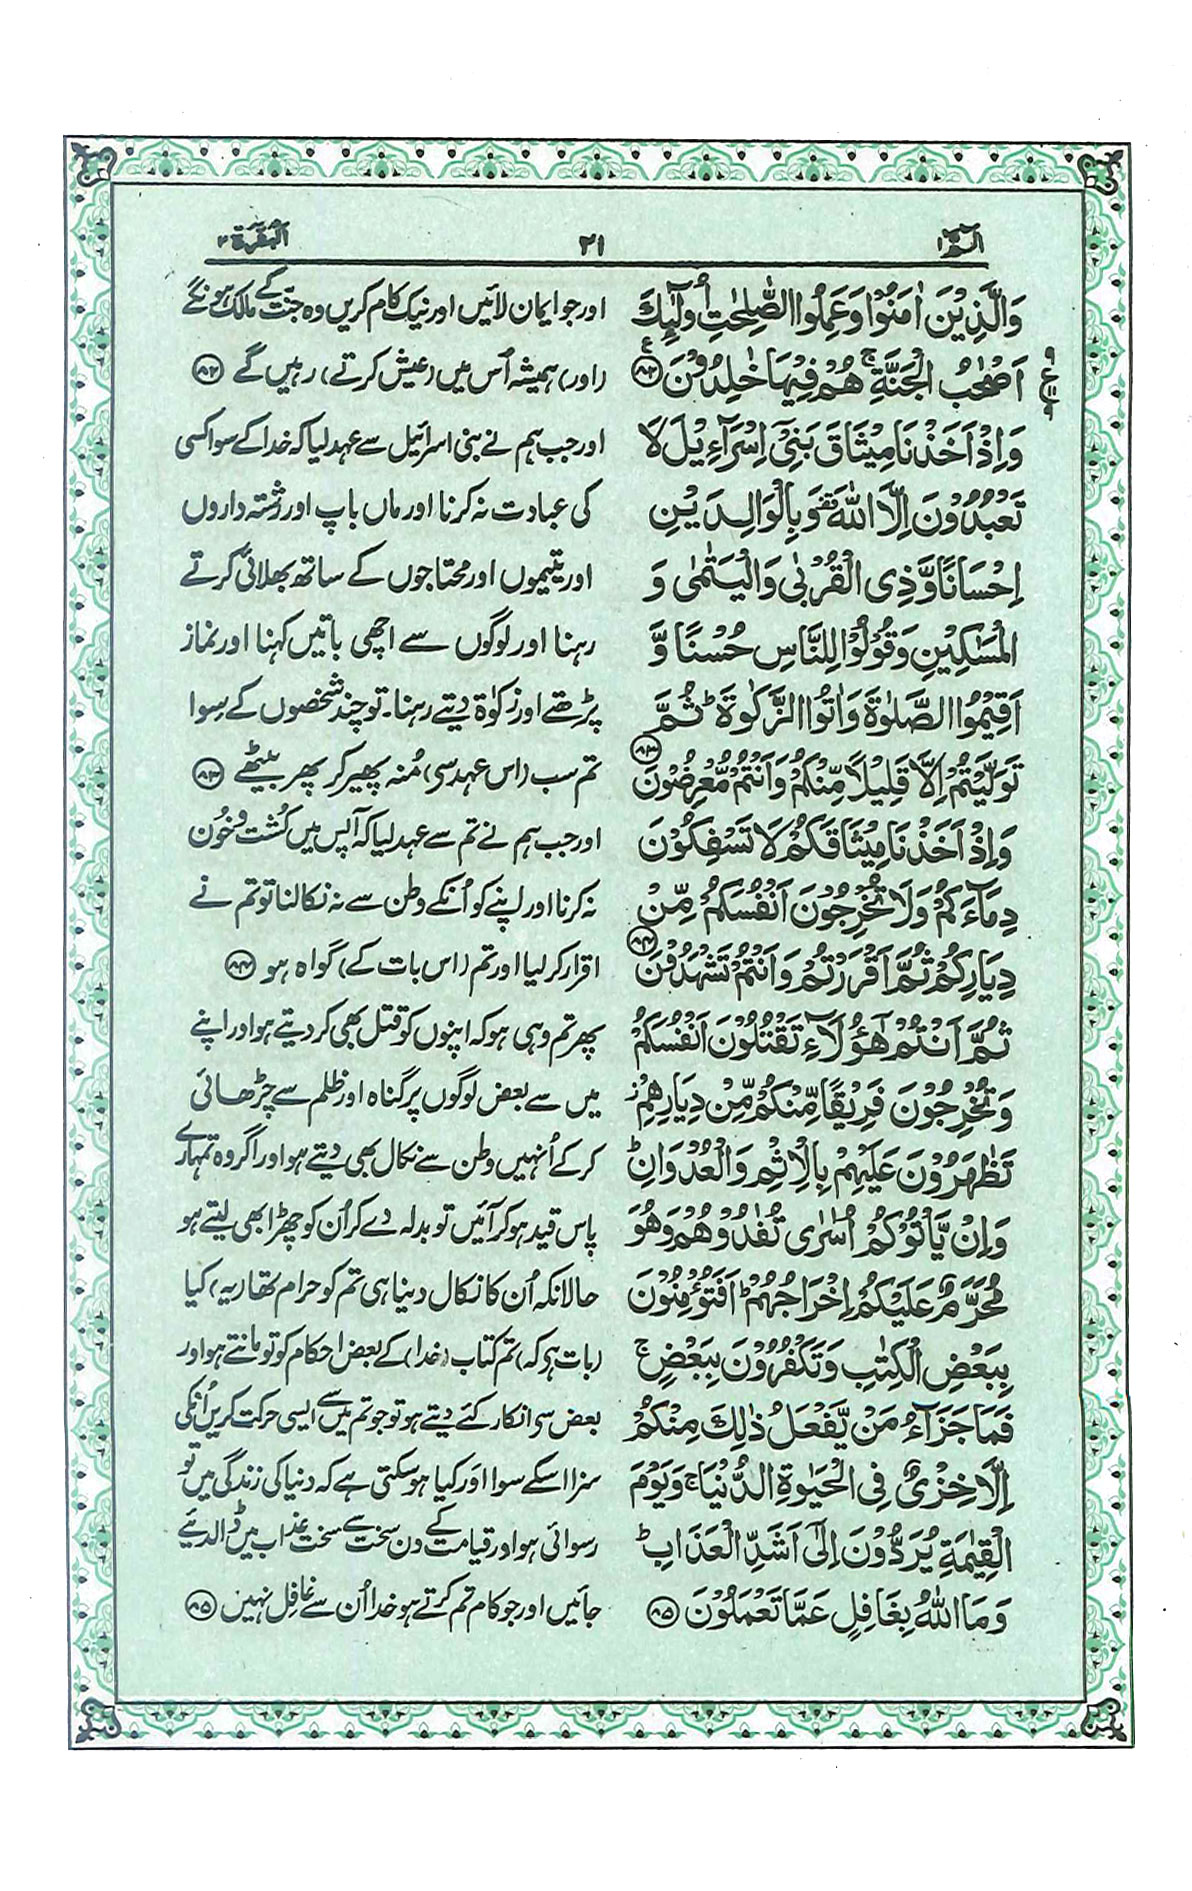 الٓمّٓ ۱
۲۱
الْبَقَرَة ۲
وَالَّذِيْنَ اٰمَنُوْا وَعَمِلُوا الصّٰلِحٰتِ اُولٰٓئِكَ
اَصْحٰبُ الْجَنَّةِ ۚ هُمْ فِيْهَا خٰلِدُوْنَ ۸۲ ع
وَاِذْ اَخَذْنَا مِيْثَاقَ بَنِيْٓ اِسْرَآءِيْلَ لَا
تَعْبُدُوْنَ اِلَّا اللّٰهَ ۫ وَ بِالْوَالِدَيْنِ
اِحْسَانًا وَّذِى الْقُرْبٰى وَالْيَتٰمٰى وَ
الْمَسٰكِيْنِ وَقُوْلُوْا لِلنَّاسِ حُسْنًا وَّ
اَقِيْمُوا الصَّلٰوةَ وَاٰتُوا الزَّكٰوةَ ؕ ثُمَّ
تَوَلَّيْتُمْ اِلَّا قَلِيْلًا مِّنْكُمْ وَاَنْتُمْ مُّعْرِضُوْنَ ۸۳
وَاِذْ اَخَذْنَا مِيْثَاقَكُمْ لَا تَسْفِكُوْنَ
دِمَآءَكُمْ وَلَا تُخْرِجُوْنَ اَنْفُسَكُمْ مِّنْ
دِيَارِكُمْ ثُمَّ اَقْرَرْتُمْ وَاَنْتُمْ تَشْهَدُوْنَ ۸۴
ثُمَّ اَنْتُمْ هٰٓؤُلَآءِ تَقْتُلُوْنَ اَنْفُسَكُمْ
وَتُخْرِجُوْنَ فَرِيْقًا مِّنْكُمْ مِّنْ دِيَارِهِمْ ز
تَظٰهَرُوْنَ عَلَيْهِمْ بِالْاِثْمِ وَالْعُدْوَانِ ؕ
وَاِنْ يَّاْتُوْكُمْ اُسٰرٰى تُفٰدُوْهُمْ وَهُوَ
مُحَرَّمٌ عَلَيْكُمْ اِخْرَاجُهُمْ ؕ اَفَتُؤْمِنُوْنَ
بِبَعْضِ الْكِتٰبِ وَتَكْفُرُوْنَ بِبَعْضٍ ۚ
فَمَا جَزَآءُ مَنْ يَّفْعَلُ ذٰلِكَ مِنْكُمْ
اِلَّا خِزْىٌ فِى الْحَيٰوةِ الدُّنْيَا ۚ وَيَوْمَ
الْقِيٰمَةِ يُرَدُّوْنَ اِلٰٓى اَشَدِّ الْعَذَابِ ؕ
وَمَا اللّٰهُ بِغَافِلٍ عَمَّا تَعْمَلُوْنَ ۸۵
اور جو ایمان لائیں اور نیک کام کریں وہ جنت کے مالک ہونگے
(اور) ہمیشہ اُس میں (عیش کرتے) رہیں گے ۸۲
اور جب ہم نے بنی اسرائیل سے عہد لیا کہ خدا کے سوا کسی
کی عبادت نہ کرنا اور ماں باپ اور رشتہ داروں
اور یتیموں اور محتاجوں کے ساتھ بھلائی کرتے
رہنا اور لوگوں سے اچھی باتیں کہنا اور نماز
پڑھتے اور زکوٰۃ دیتے رہنا۔ تو چند شخصوں کے سِوا
تم سب (اس عہد سے) مُنہ پھیر کر پھر بیٹھے ۸۳
اور جب ہم نے تم سے عہد لیا کہ آپس میں کُشت و خُون
نہ کرنا اور اپنے کو اُنکے وطن سے نہ نکالنا تو تم نے
اقرار کر لیا اور تم (اس بات کے) گواہ ہو ۸۴
پھر تم وہی ہو کہ اپنوں کو قتل بھی کر دیتے ہو اور اپنے
میں سے بعض لوگوں پر گناہ اور ظلم سے چڑھائی
کر کے اُنہیں وطن سے نکال بھی دیتے ہو اور اگر وہ تمہارے
پاس قید ہو کر آئیں تو بدلہ دے کر اُن کو چھڑا بھی لیتے ہو
حالانکہ اُن کا نکال دینا ہی تم کو حرام تھا (یہ) کیا
(بات ہے کہ) تم کتاب (خدا) کے بعض احکام کو تو مانتے ہو اور
بعض سے انکار کئے دیتے ہو تو جو تم میں سے ایسی حرکت کریں اُنکی
سزا اسکے سوا اَور کیا ہو سکتی ہے کہ دنیا کی زندگی میں تو
رسوائی ہو اور قیامت کے دن سخت سے سخت عذاب میں ڈال دئیے
جائیں اور جو کام تم کرتے ہو خدا اُن سے غافل نہیں ۸۵